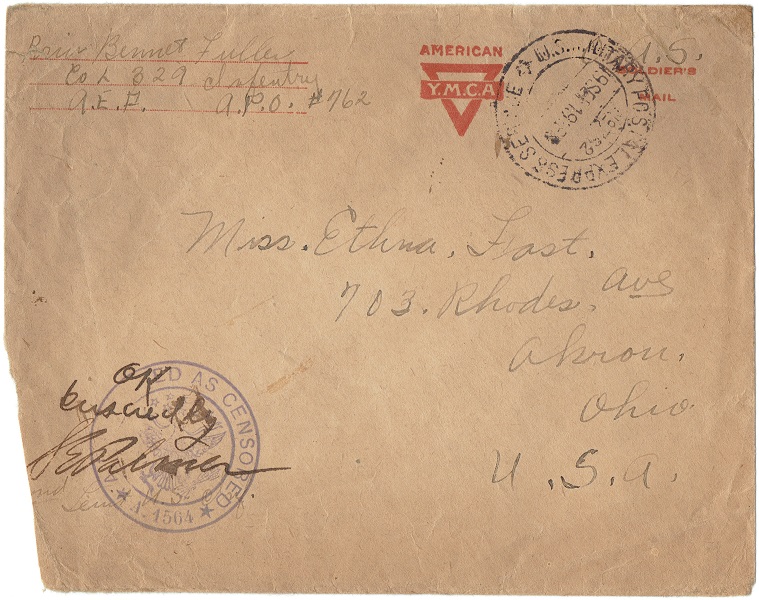 Bennet Fuller
Co L 329 Infantry
A.E.F. A.P.O. #762
AMERICAN
Y.M.C.A
U.S.
SOLDIER'S
MAIL
U.S. MILITARY POSTAL EXPRESS SERVICE
762
Miss. Ethna. Fast.
703. Rhodes. Ave
Akron.
Ohio.
U.S.A.
OK
Censored by
Palmer
PASSED AS CENSORED
A.1564